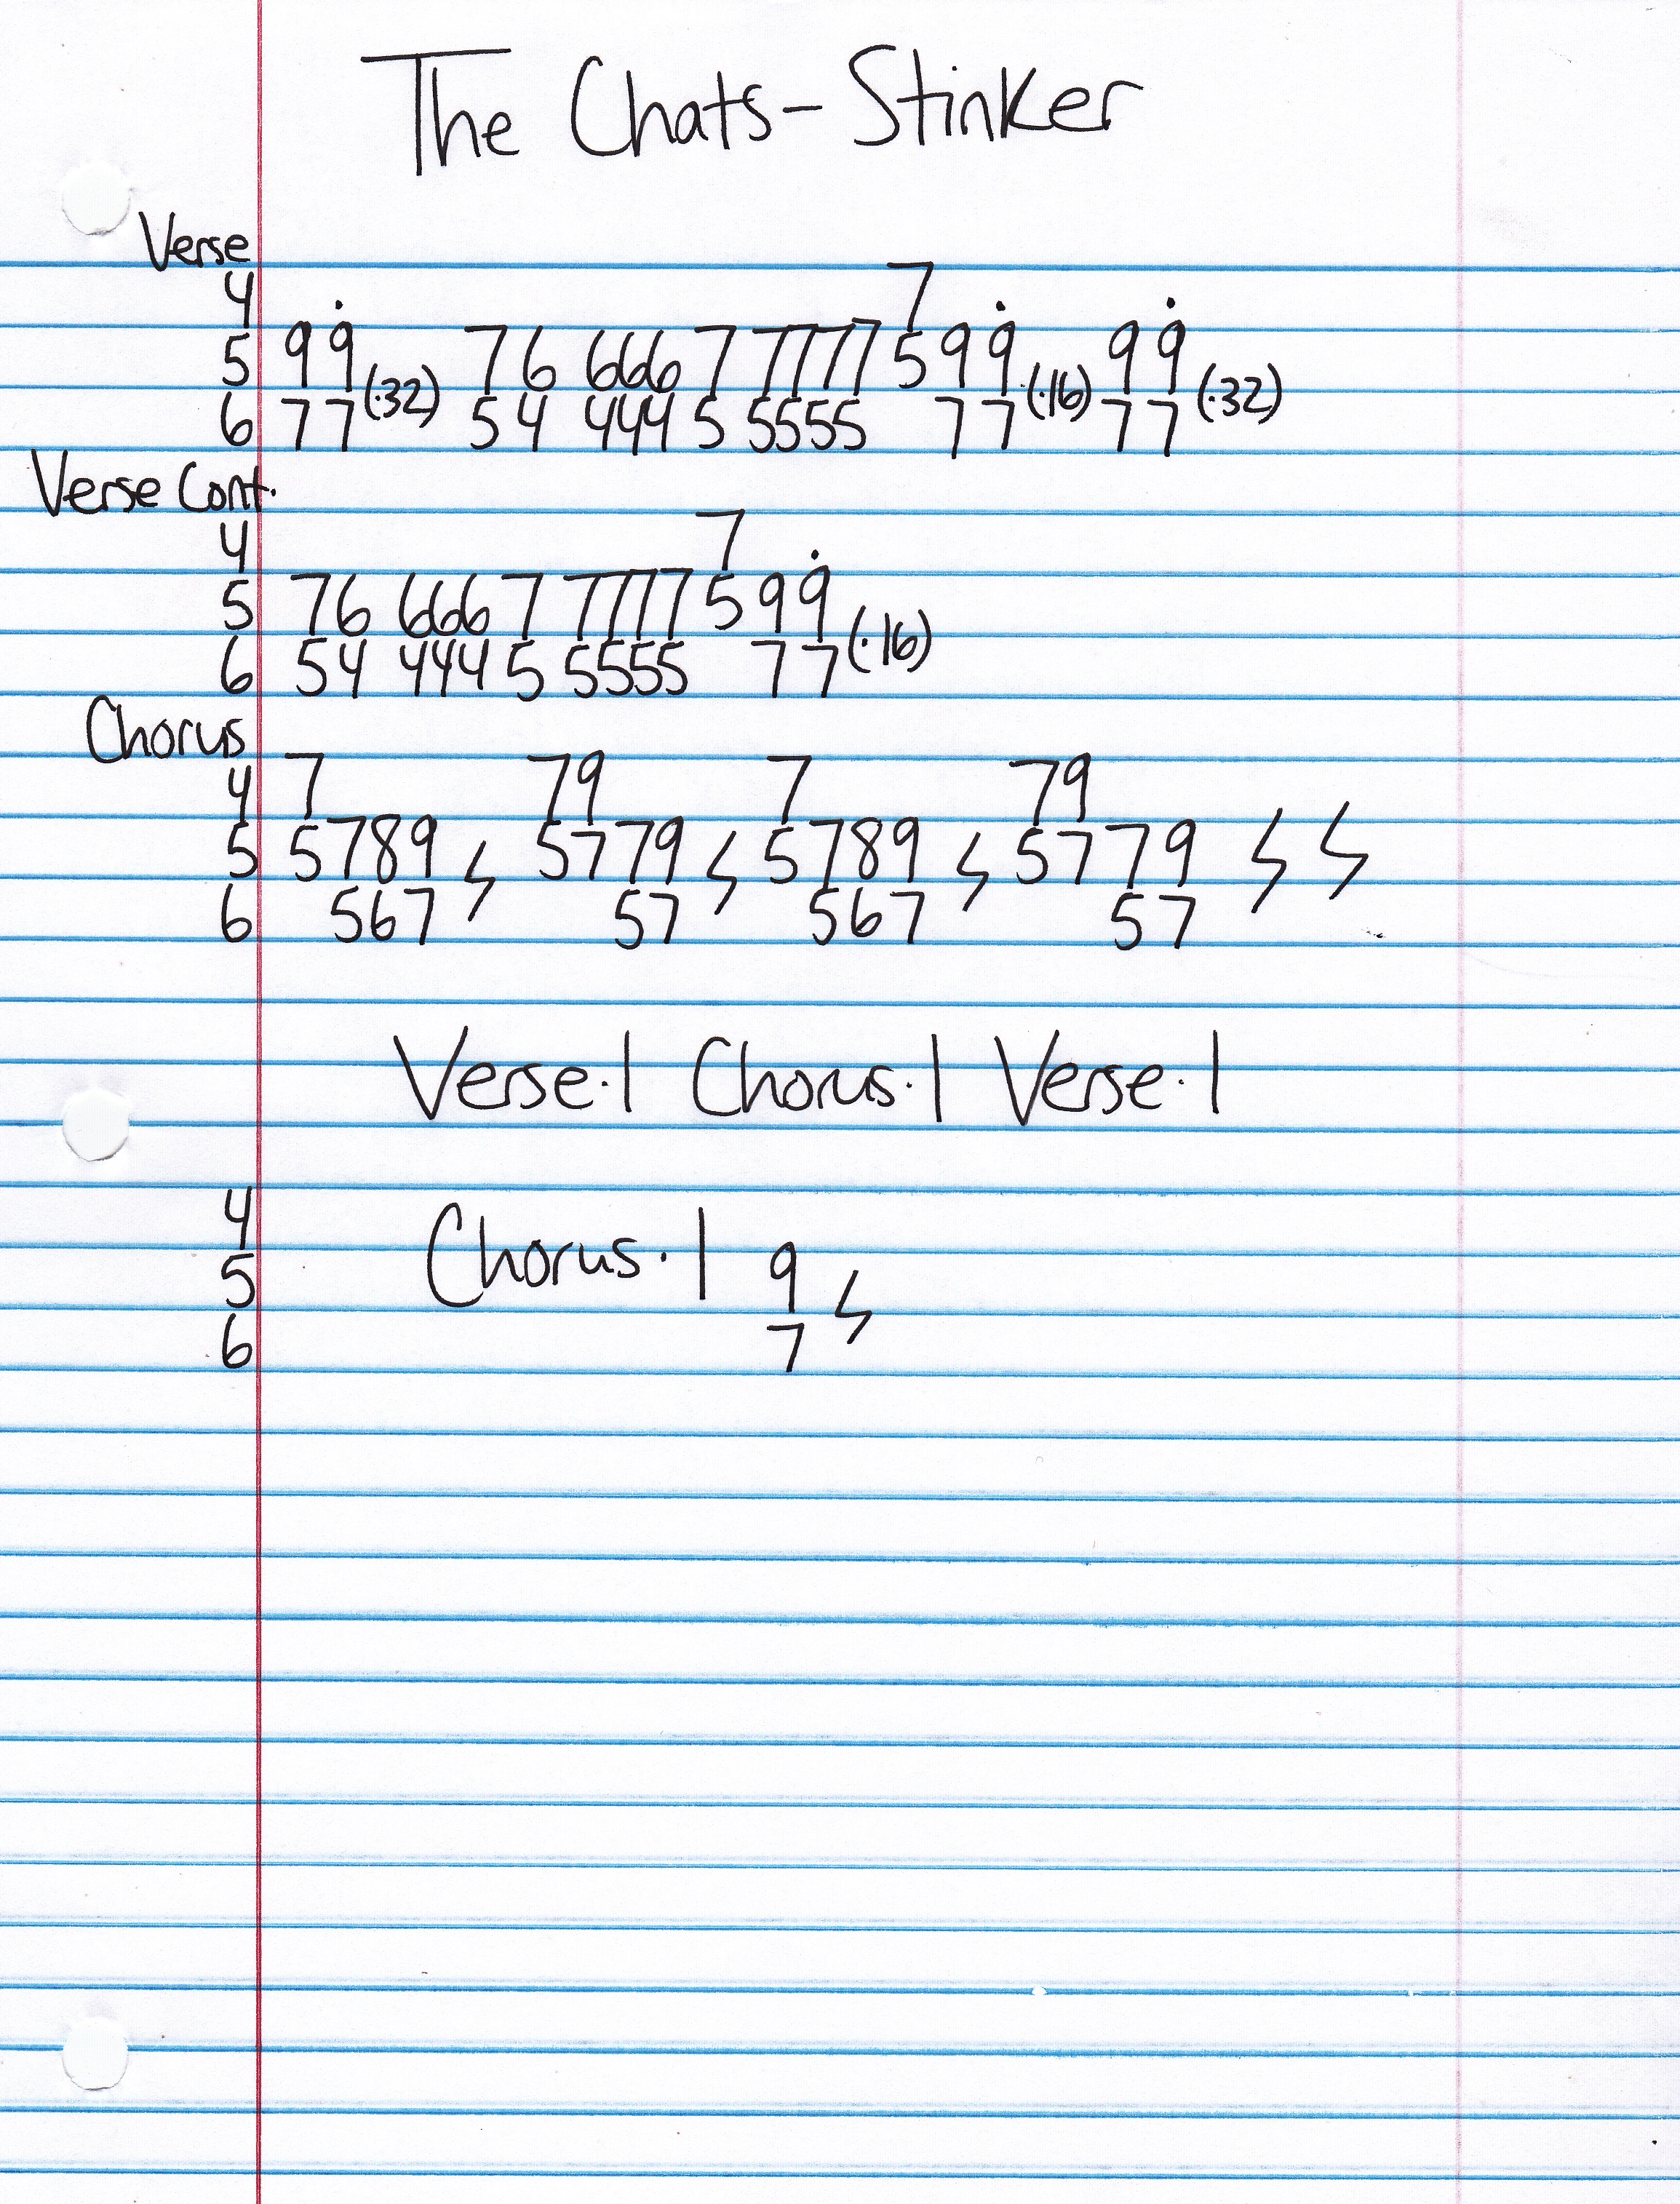 The Chats- Stinker
Verse
4 7
5 99(·32) 76 666 7 7777 5 99(·16) 99(·32)
6 77 54 444 5 5555 77 77
Verse Cont.
4 7
5 76 666 7 7777 5 99(·16)
6 54 444 5 5555 77
Chorus
4 7 79 7 79
5 5789 5779 5789 5779
6 567 57 567 57
Verse·1 Chorus·1 Verse·1
4
5 Chorus·1 9
6 7